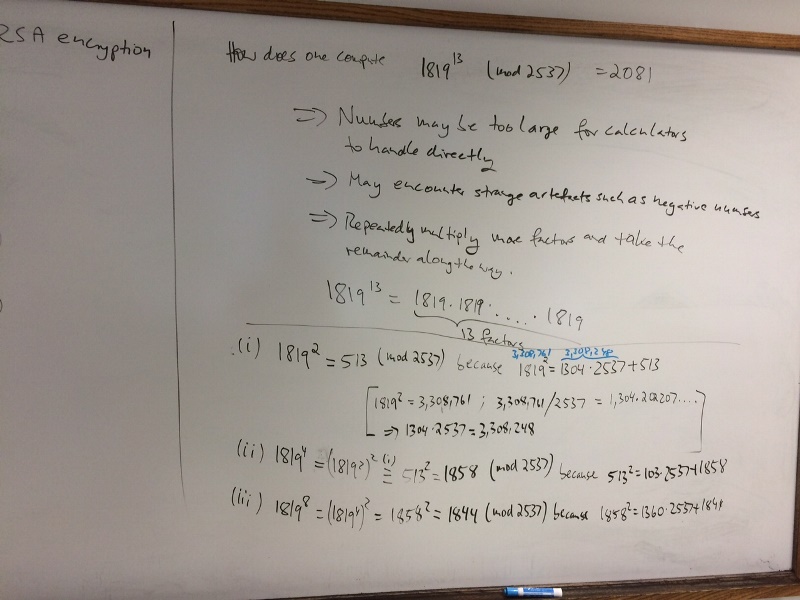 RSA encryption
How does one compute 1819^13 (mod 2537) = 2081
⇒ Numbers may be too large for calculators
to handle directly
⇒ May encounter strange artefacts such as negative numbers
⇒ Repeatedly multiply more factors and take the
remainder along the way.
1819^13 = 1819 · 1819 · . . . . . · 1819
13 factors
3,308,761 3,308,248
(i) 1819^2 = 513 (mod 2537) because 1819^2 = 1304 · 2537 + 513
[1819^2 = 3,308,761 ; 3,308,761/2537 = 1,304.202207....
⇒ 1304 · 2537 = 3,308,248]
(ii) 1819^4 = (1819^2)^2 (i)≡ 513^2 = 1858 (mod 2537) because 513^2 = 103·2537+1858
(iii) 1819^8 = (1819^4)^2 = 1858^2 = 1844 (mod 2537) because 1858^2 = 1360·2537+1844